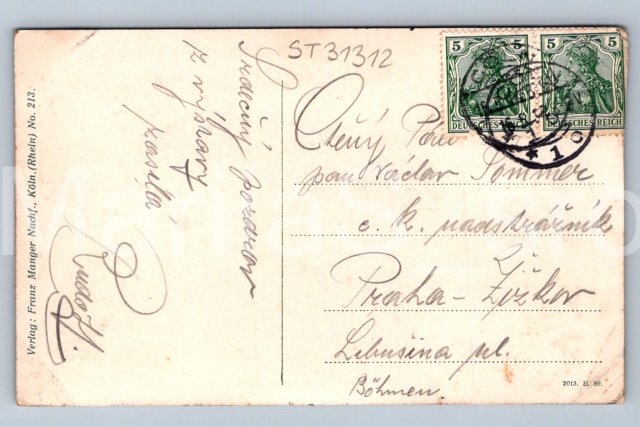 ST31312
5
5
DEUTSCHES
DEUTSCHES REICH
* 1
Srdečný pozdrav
z výstavy
zasílá
Rudolf.
Ctěný Pan
pan Václav Sommer
c. k. nadstrážník
Praha-Žižkov
Libušina ul.
Böhmen.
Verlag: Franz Manger Nachf., Köln.(Rhein) No. 213.
2013. B. 89.